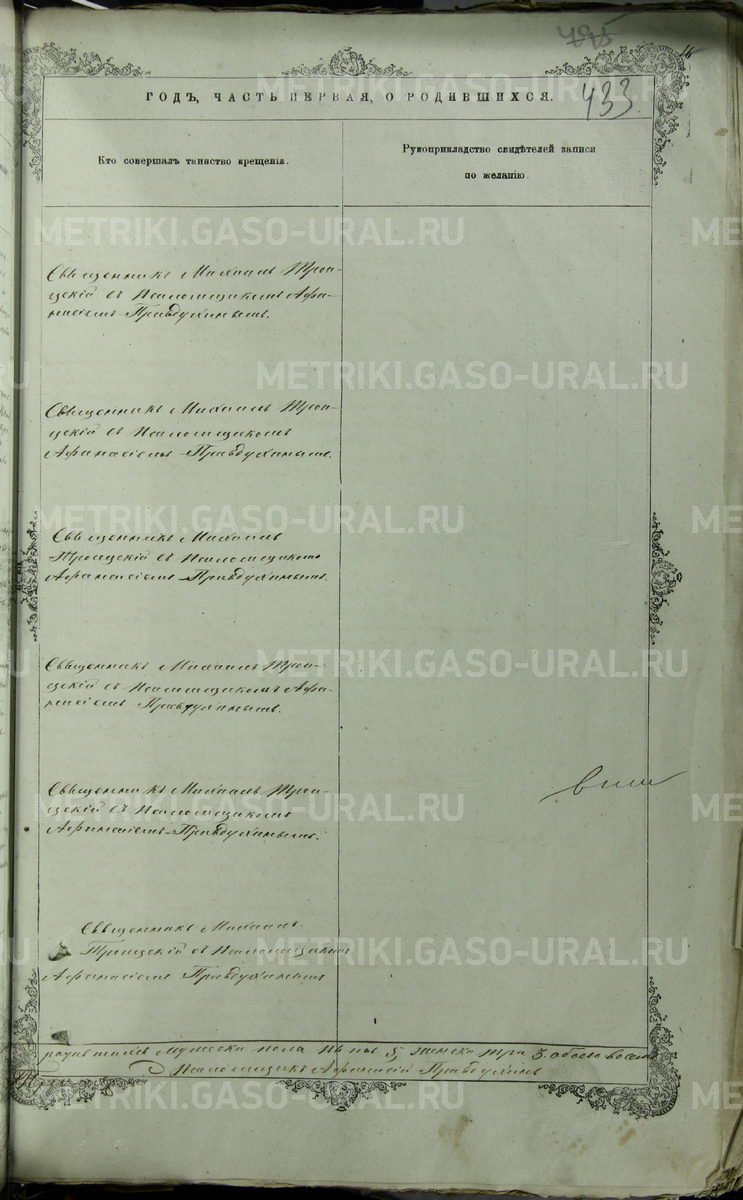 433
16
ГОДЪ, ЧАСТЬ ПЕРВАЯ, О РОДИВШИХСЯ.
Кто совершалъ таинство крещенія.
Рукоприкладство свидѣтелей записи
по желанію.
Священникъ Михаилъ Трои-
цскій съ Псаломщикомъ Афа-
насіемъ Правдухинымъ.
Священникъ Михаилъ Трои-
цскій съ Псаломщикомъ
Афанасіемъ Правдухинымъ.
Священникъ Михаилъ
Троицскій съ Псаломщикомъ
Афанасіемъ Правдухинымъ.
Священникъ Михаилъ Трои-
цскій съ Псаломщикомъ Афа-
насіемъ Правдухинымъ.
Священникъ Михаилъ Трои-
цскій съ Псаломщикомъ
Афанасіемъ Правдухинымъ.
Священникъ Михаилъ
Троицскій съ Псаломщикомъ
Афанасіемъ Правдухинымъ
родившихся мужеска пола 5, женска три обоего восемь
Псаломщикъ Афанасій Правдухинъ
METRIKI.GASO-URAL.RU